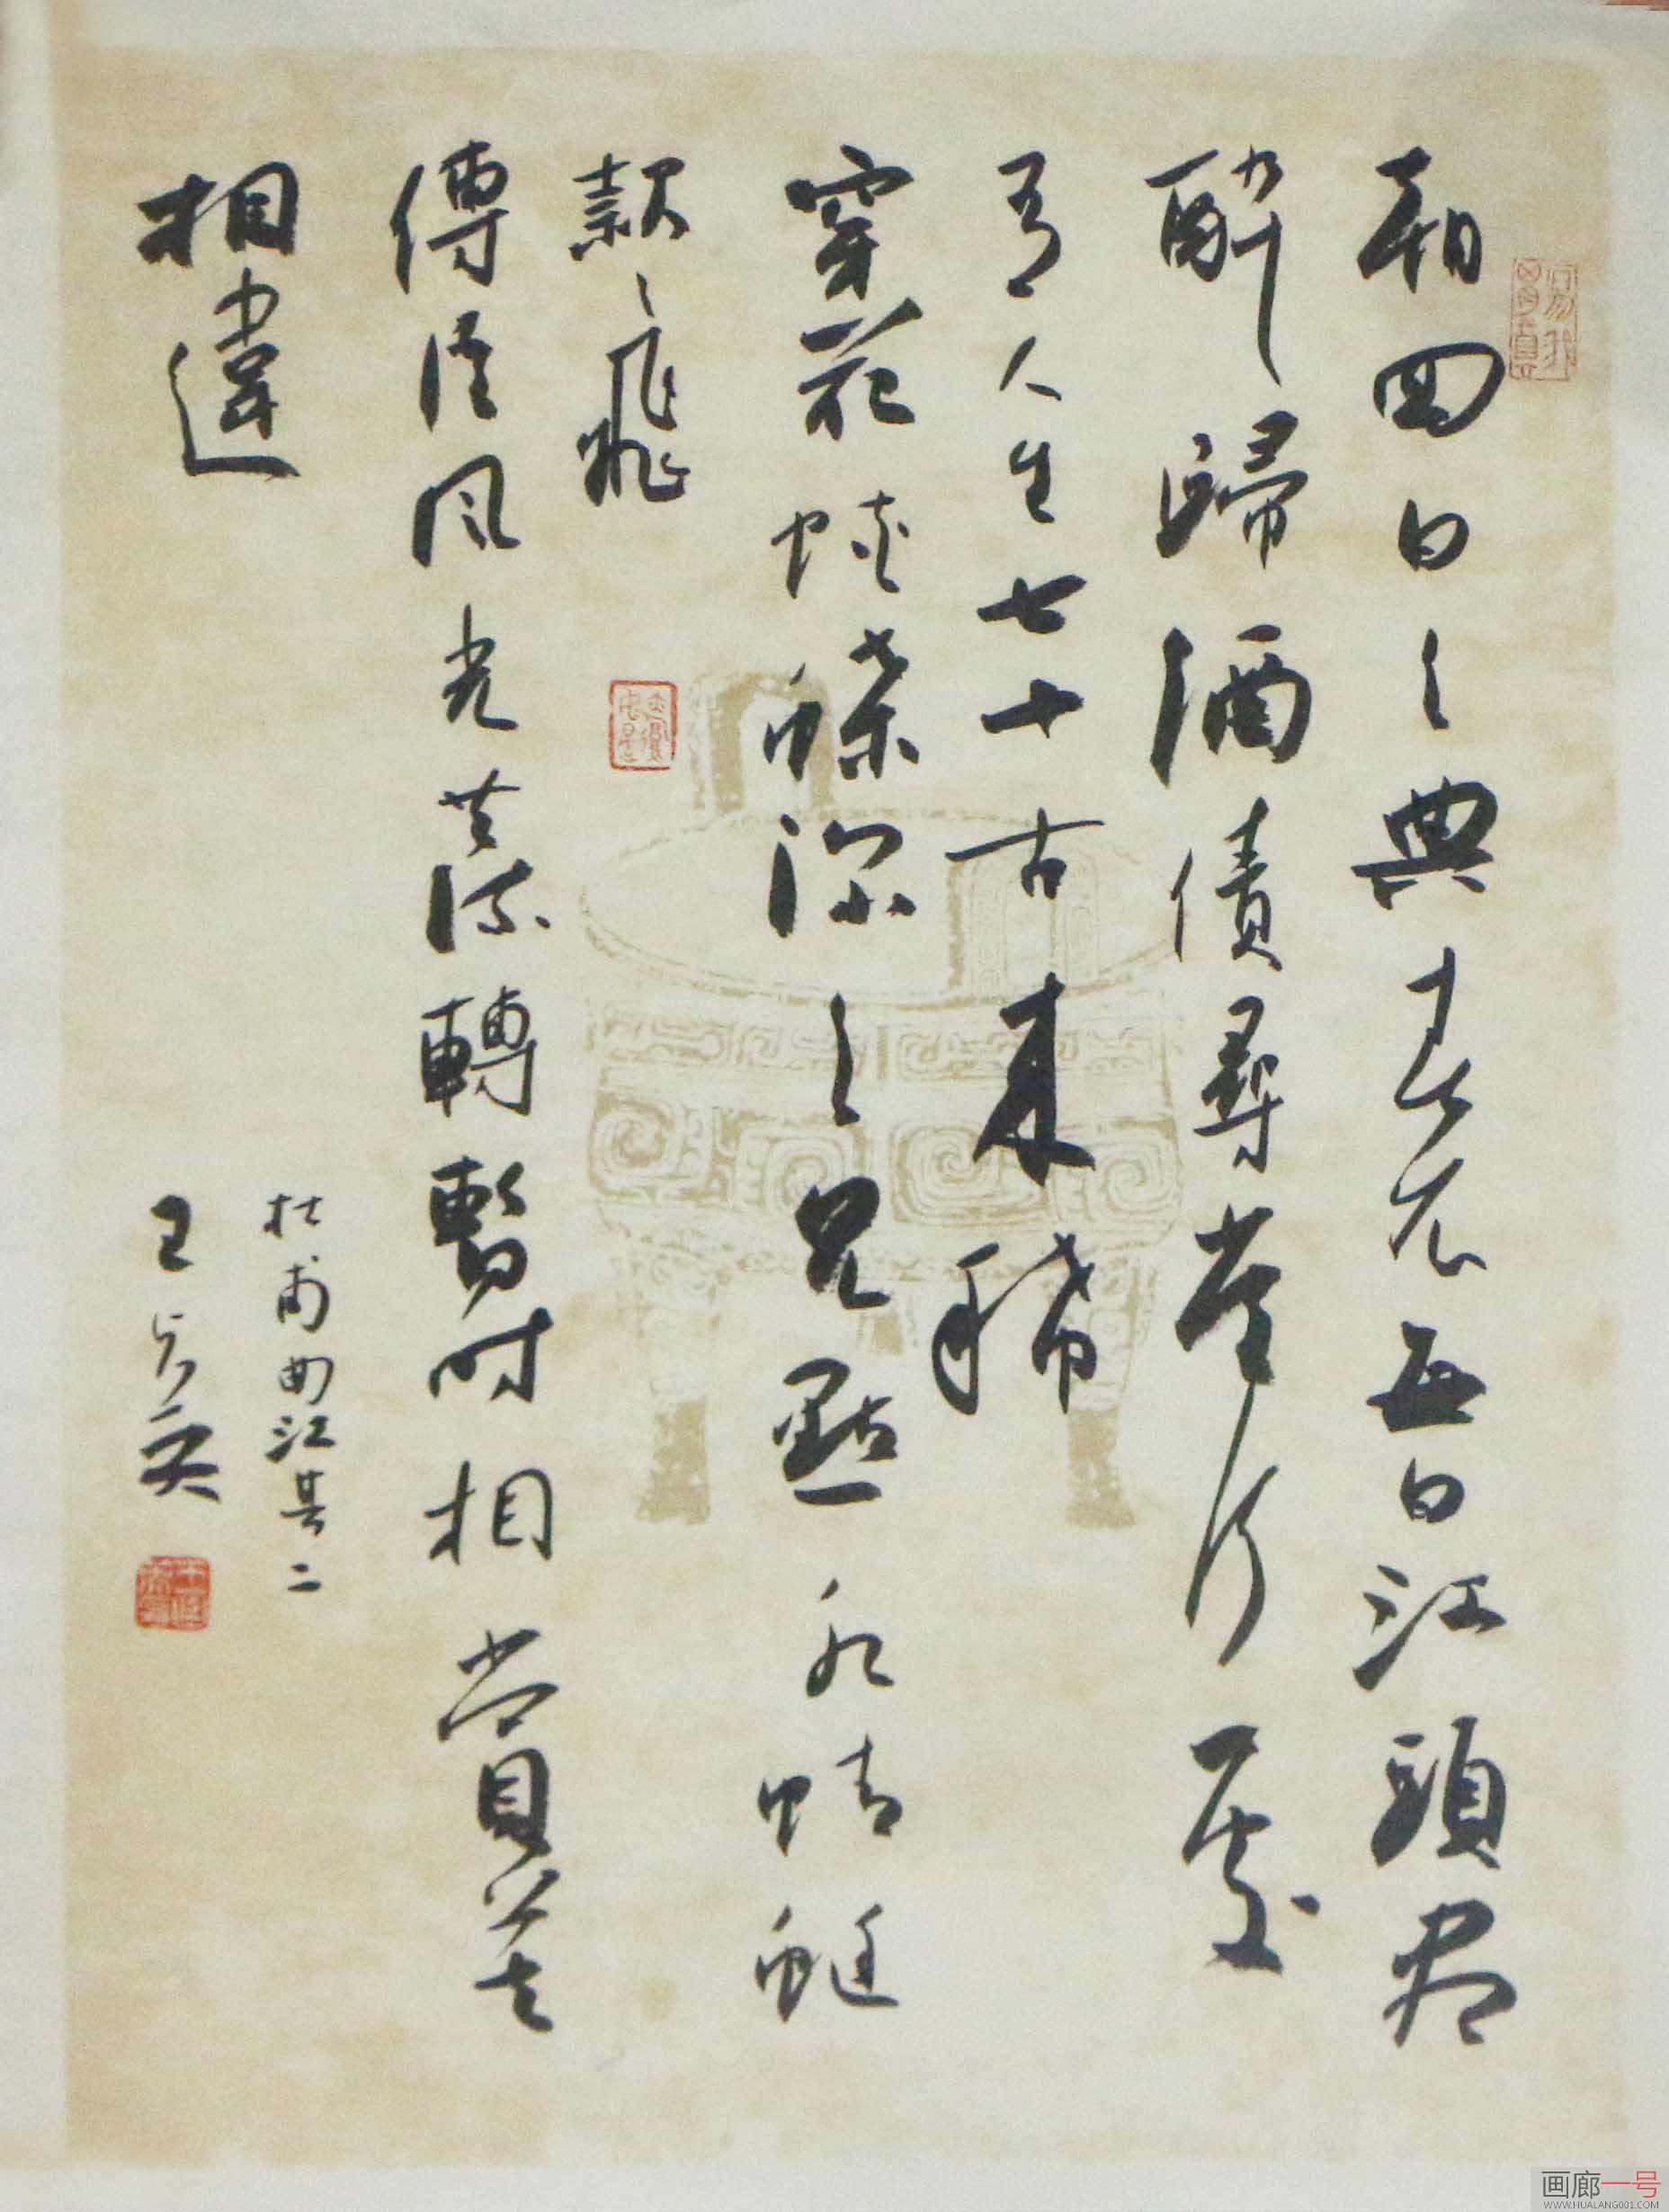 朝回日々典春衣每日江頭盡
醉歸酒債尋常行處
有人生七十古来稀
穿花蛺蝶深々見點水蜻蜓
款々飛
傳語風光共流轉暫時相賞莫
相違
杜甫曲江其二
王
画廊一号
WWW.HUALANG001.COM